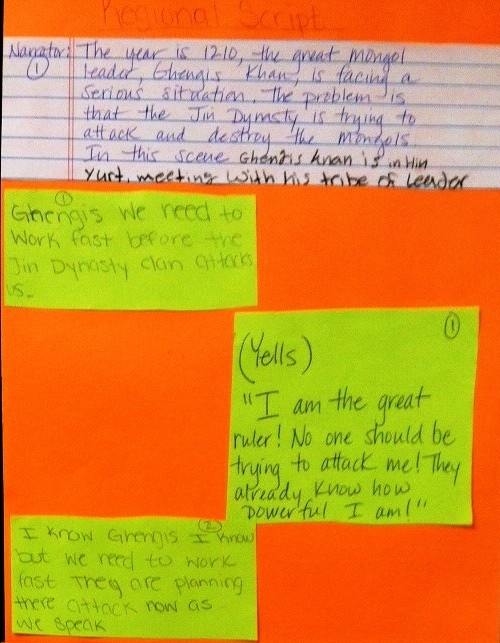 Regional Script
Narrator: The year is 1210, the great mongol
① leader, Ghengis Khan, is facing a
serious situation. The problem is
that the Jin Dynasty is trying to
attack and destroy the Mongols
In this scene Ghengis khan is in Him
Yurt, meeting with his tribe of Leader
①
Ghengis we need to
work fast before the
Jin Dynasty clan attacks
us.
①
(Yells)
"I am the great
ruler! No one should be
trying to attack me! They
already know how
powerful I am!"
②
I know Ghengis I know
but we need to work
fast They are planning
there attack now as
we speak